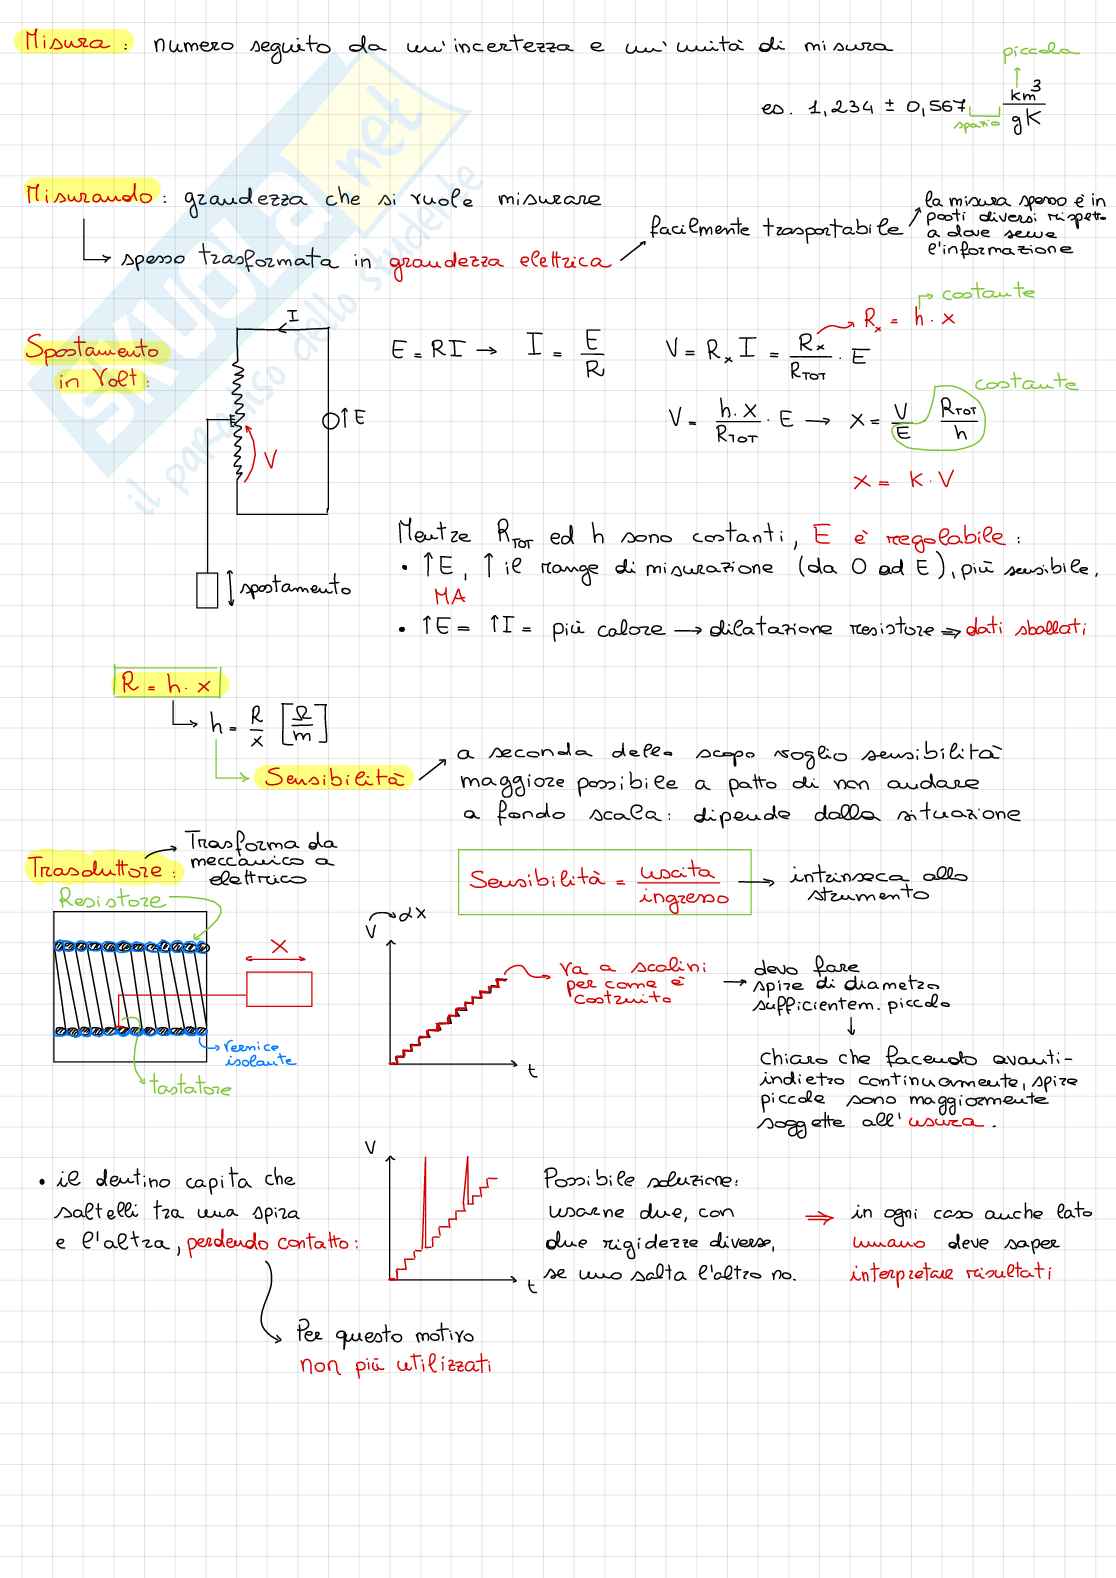 Misura : numero seguito da un'incertezza e un'unità di misura
piccola
es. 1,234 ± 0,567 km³/gK
spazio
Misurando : grandezza che si vuole misurare
spesso trasformata in grandezza elettrica
facilmente trasportabile
la misura spesso è in
posti diversi rispetto
a dove serve
l'informazione
Spostamento
in Volt:
I
E
V
spostamento
E = RI → I = E/R
V = Rₓ I = Rₓ/R_TOT · E
Rₓ = h · x
costante
V = h·x/R_TOT · E → x = V/E R_TOT/h
costante
x = K · V
Mentre R_TOT ed h sono costanti, E è regolabile :
• ↑E, ↑ il range di misurazione (da 0 ad E), più sensibile,
MA
• ↑E = ↑I = più calore → dilatazione resistore ⇒ dati sballati
R = h · x
h = R/x [Ω/m]
Sensibilità
a seconda dello scopo voglio sensibilità
maggiore possibile a patto di non andare
a fondo scala: dipende dalla situazione
Trasduttore :
Trasforma da
meccanico a
elettrico
Sensibilità = uscita/ingresso
intrinseca allo
strumento
Resistore
x
vernice
isolante
tastatore
V
αx
t
va a scalini
per come è
costruito
devo fare
spire di diametro
sufficientem. piccolo
Chiaro che facendo avanti-
indietro continuamente, spire
piccole sono maggiormente
soggette all'usura.
• il dentino capita che
saltelli tra una spira
e l'altra, perdendo contatto:
V
t
Possibile soluzione:
usarne due, con
due rigidezze diverse,
se uno salta l'altro no.
⇒ in ogni caso anche lato
umano deve saper
interpretare risultati
Per questo motivo
non più utilizzati
SKUOLA.net
il paradiso dello studente